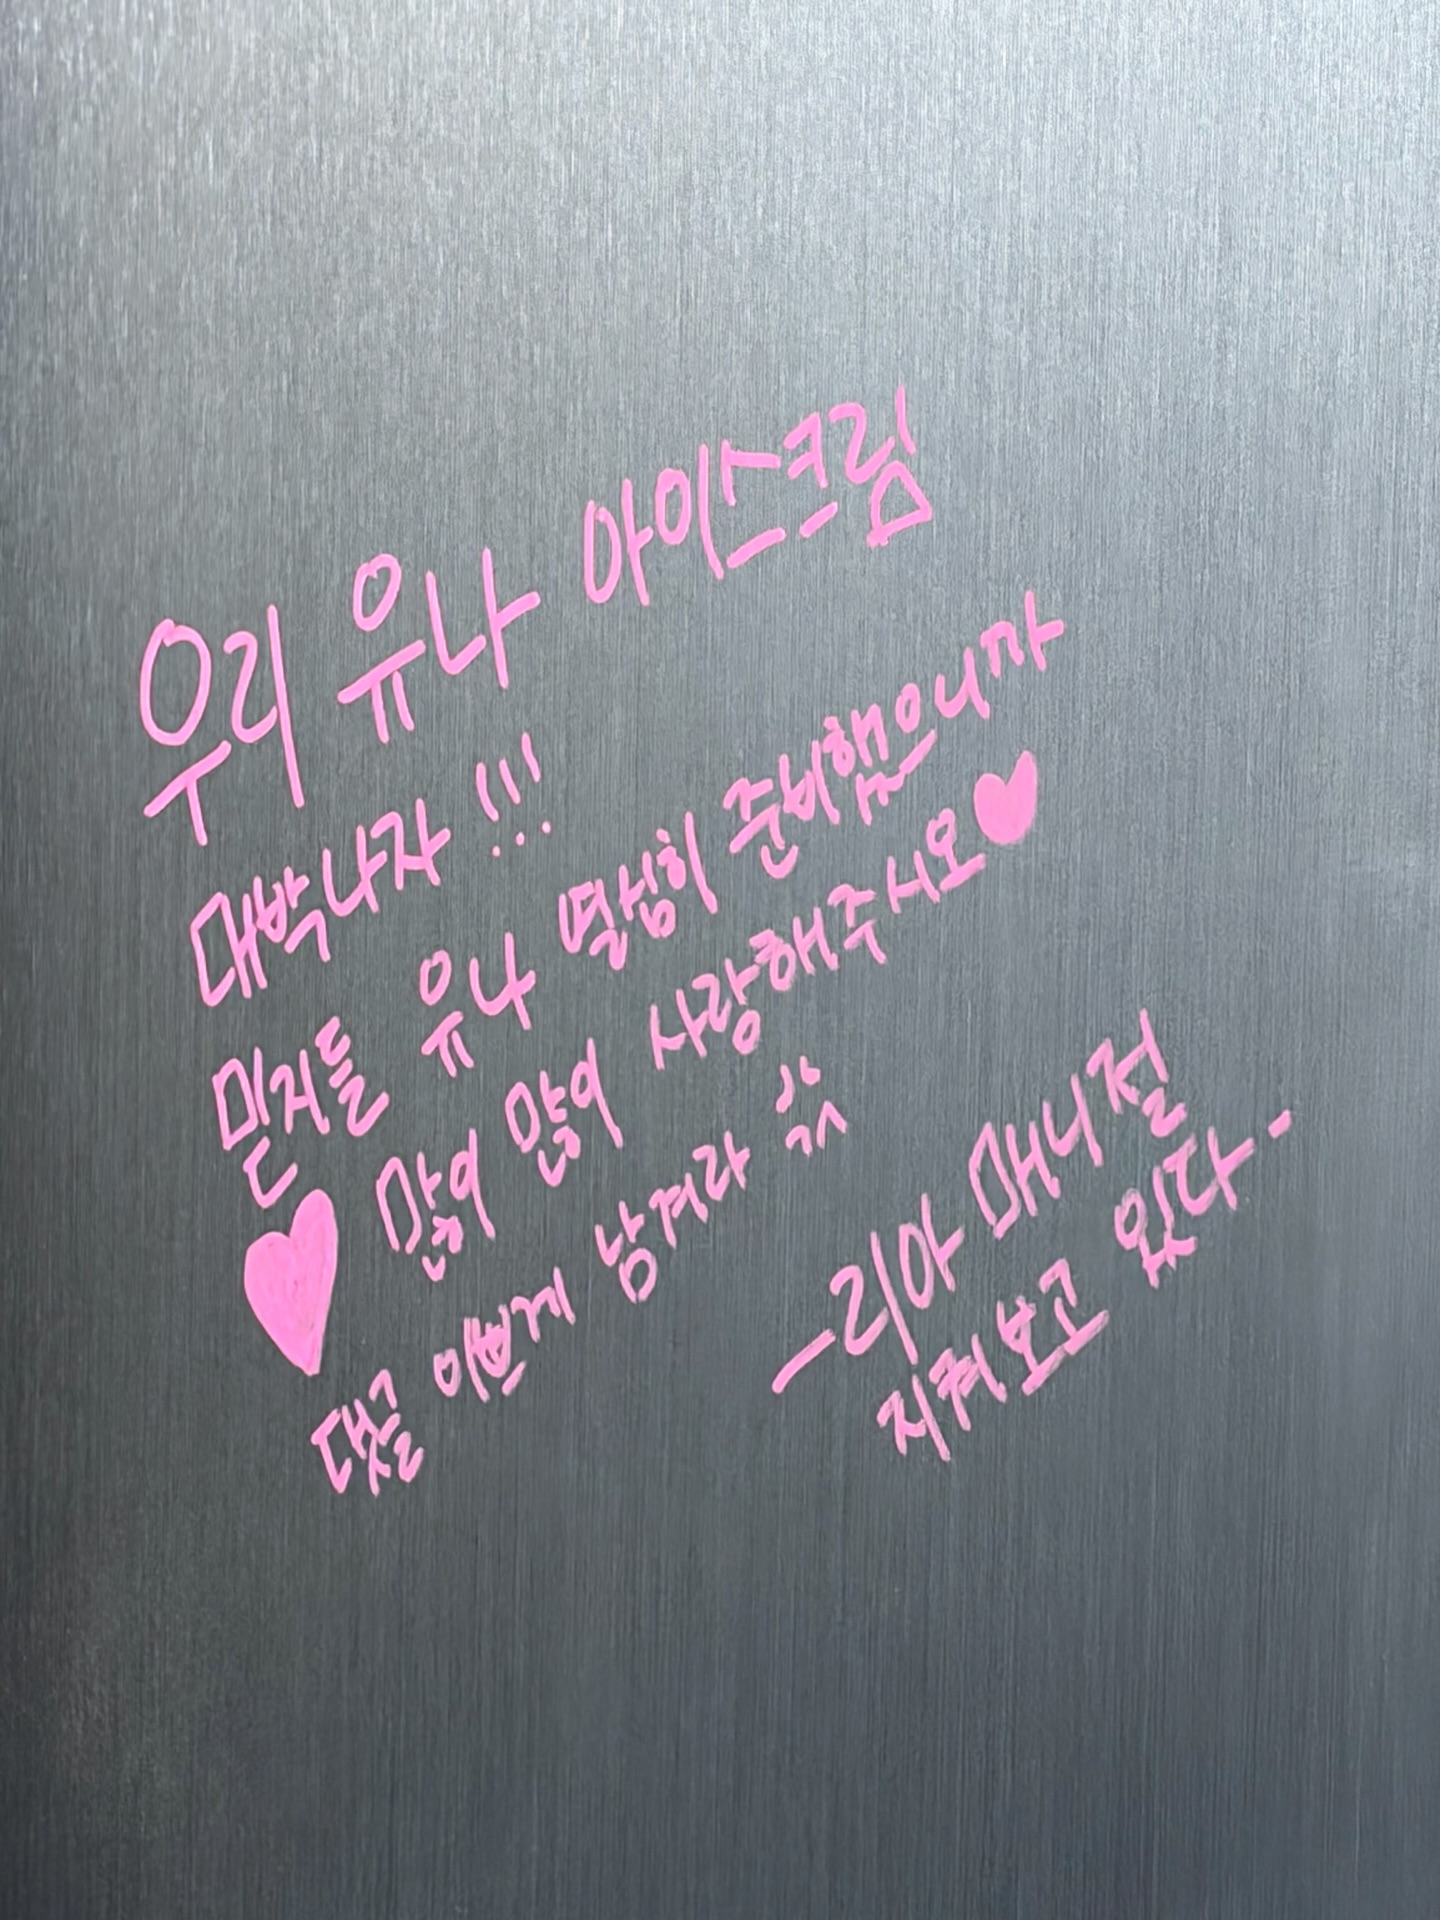 우리 유나 아이스크림
대박나자 !!!
믿지들 유나 열심히 준비했으니까
많이 많이 사랑해주시오♥
♥
댓글 이쁘게 남겨라 💢
-리아 매니절
지켜보고 있다-